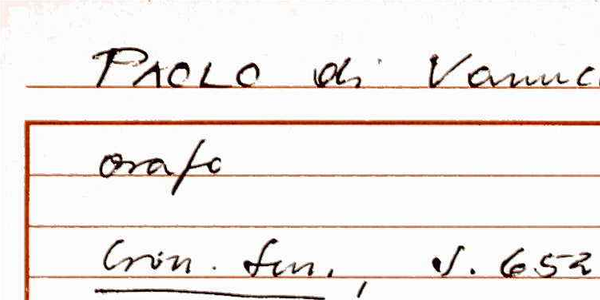 PAOLO di Vannuc
orafo
Cron. Sen., s. 652